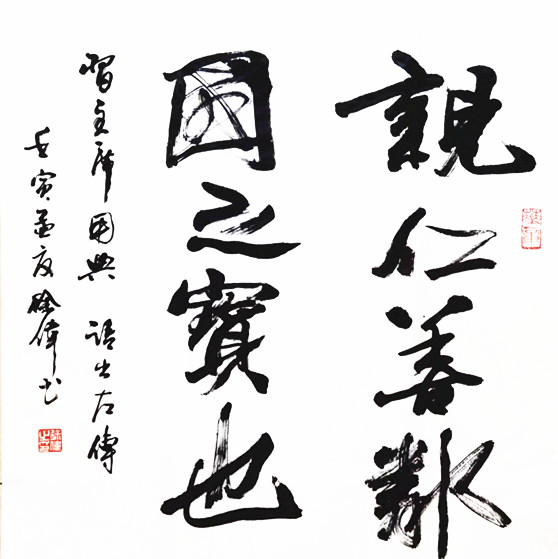 親仁善鄰
國之寶也
習主席用典 語出左傳
壬寅孟夏 徐偉書